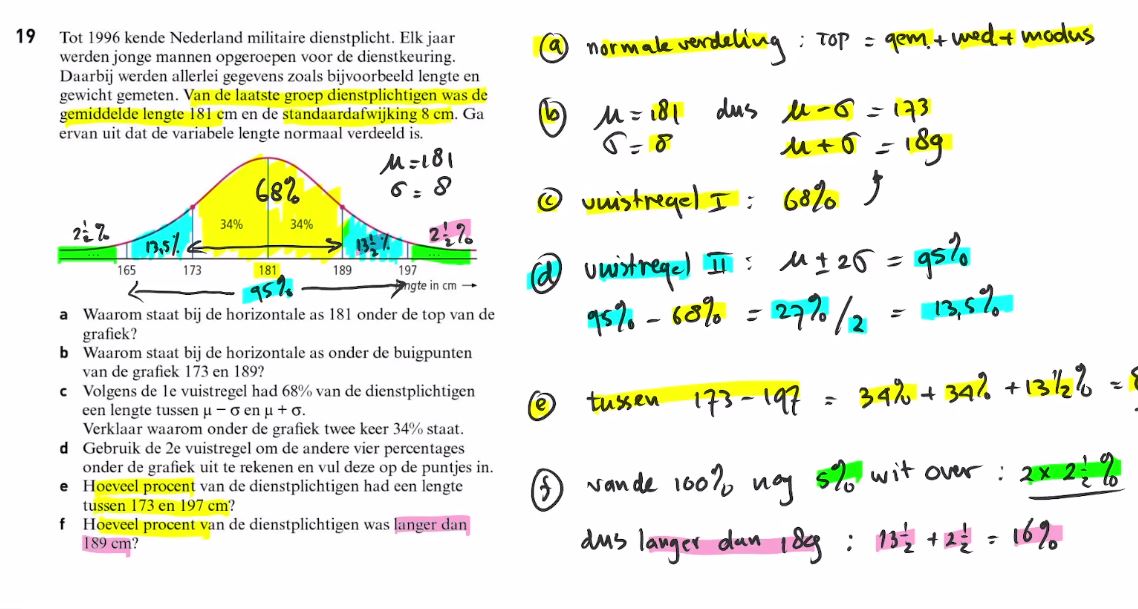 19 Tot 1996 kende Nederland militaire dienstplicht. Elk jaar
werden jonge mannen opgeroepen voor de dienstkeuring.
Daarbij werden allerlei gegevens zoals bijvoorbeeld lengte en
gewicht gemeten. Van de laatste groep dienstplichtigen was de
gemiddelde lengte 181 cm en de standaardafwijking 8 cm. Ga
ervan uit dat de variabele lengte normaal verdeeld is.
μ=181
σ = 8
68%
34% 34%
2½% 13,5% 13½% 2½%
...
165 173 181 189 197
95% lengte in cm →
a Waarom staat bij de horizontale as 181 onder de top van de
grafiek?
b Waarom staat bij de horizontale as onder de buigpunten
van de grafiek 173 en 189?
c Volgens de 1e vuistregel had 68% van de dienstplichtigen
een lengte tussen μ − σ en μ + σ.
Verklaar waarom onder de grafiek twee keer 34% staat.
d Gebruik de 2e vuistregel om de andere vier percentages
onder de grafiek uit te rekenen en vul deze op de puntjes in.
e Hoeveel procent van de dienstplichtigen had een lengte
tussen 173 en 197 cm?
f Hoeveel procent van de dienstplichtigen was langer dan
189 cm?
a normale verdeling : TOP = gem. + med + modus
b μ = 181 dus μ − σ = 173
σ = 8 μ + σ = 189
c vuistregel I : 68%
d vuistregel II : μ ± 2σ = 95%
95% − 68% = 27%/2 = 13,5%
e tussen 173 − 197 = 34% + 34% + 13½% =
f van de 100% nog 5% wit over : 2 × 2½%
dus langer dan 189 : 13½ + 2½ = 16%